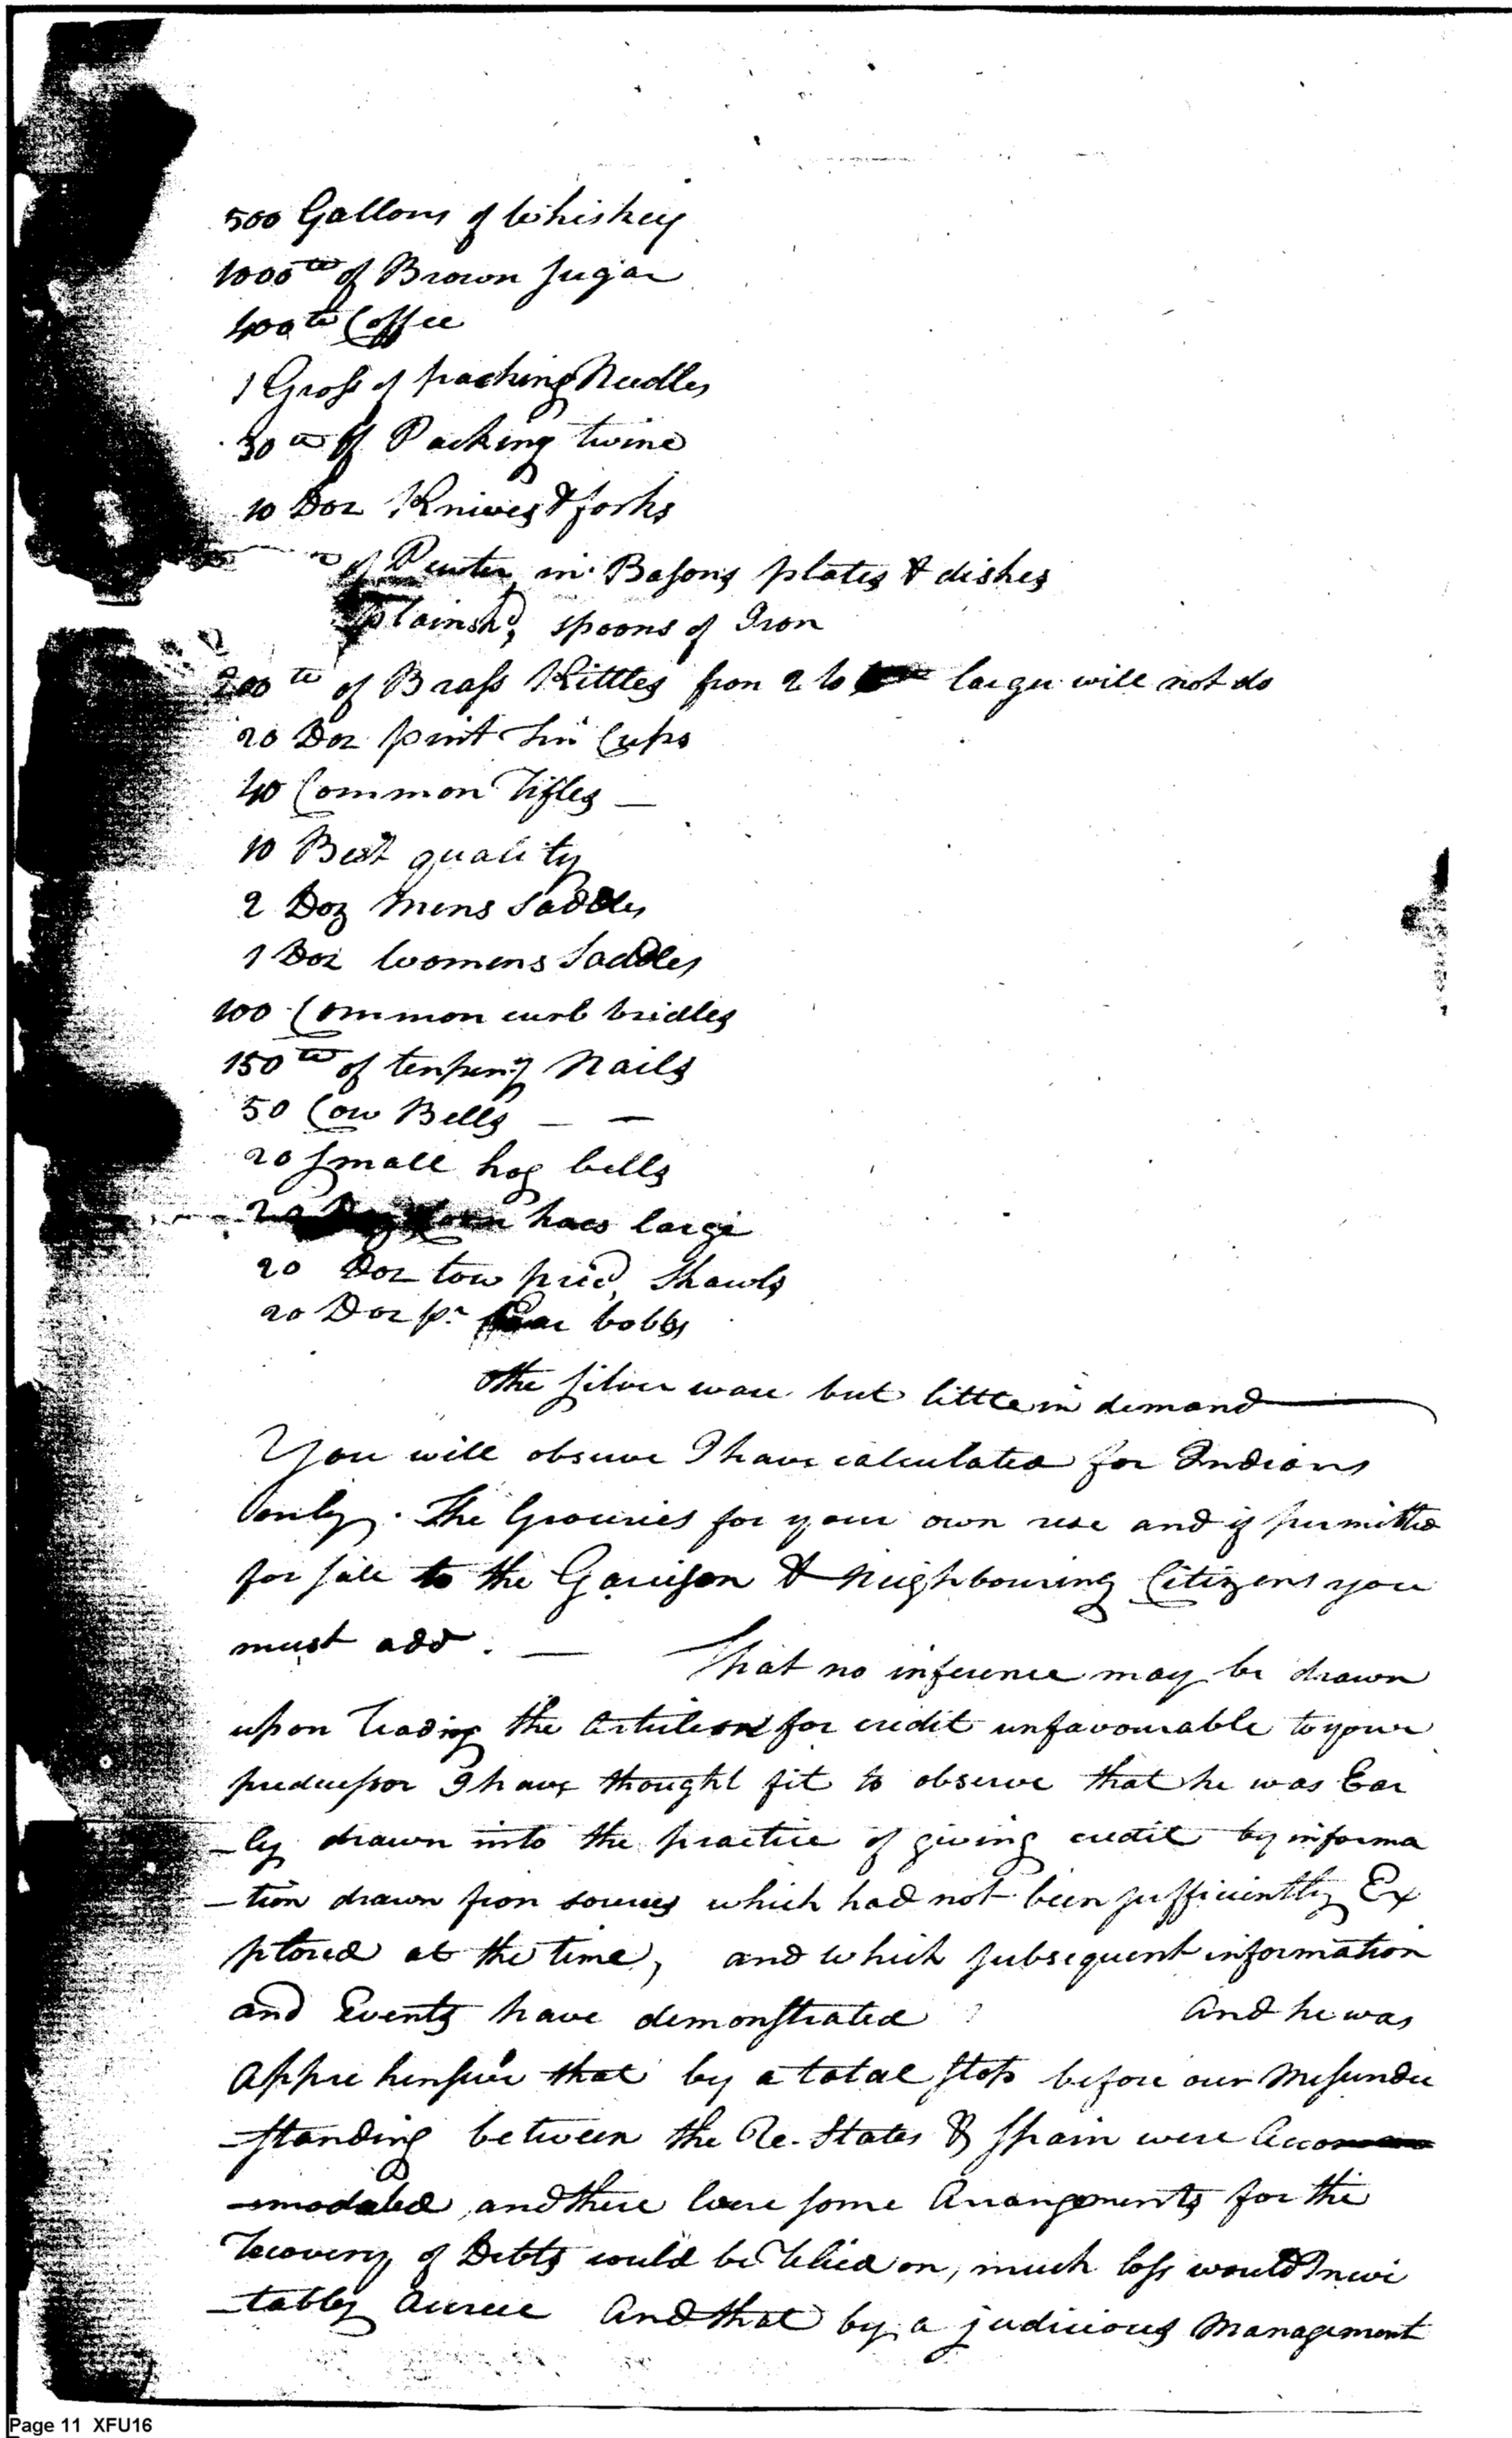 500 Gallons of Whiskey
1000 lb of Brown Sugar
400 lb Coffee
1 Gross of packing Needles
30 lb of Packing twine
10 Doz Knives & forks
of Pewter in Basons plates & dishes
plainshd, spoons of Iron
200 lb of Brass Kittles from 2 to larger will not do
20 Doz pint Tin Cups
40 Common rifles —
10 Best quality
2 Doz mens saddles
1 Doz Womens Saddles
100 Common curb bridles
150 lb of tenpeny Nails
50 Cow Bells — —
20 Small hog bells
20 hoes large
20 Doz low pricd, Shawls
20 Doz pr Ear bobbs
The silver ware but little in demand —
You will observe I have calculated for Indians
only. The Groceries for your own use and if permitted
for sale to the Garrison & Neighbouring Citizens you
must add. — That no inference may be drawn
upon reading the article for credit unfavourable to your
predecessor I have thought fit to observe that he was Ear
-ly drawn into the practice of giving credit by informa
-tion drawn from sources which had not been sufficiently Ex
plored at the time, and which subsequent information
and Events have demonstrated and he was
apprehensive that by a total stop before our Misunder
-standing between the U. States & Spain were Accom
-modated, and there were some Arrangements for the
recovery of Debts could be relied on, much loss would Inevi
-tably accrue And that by a judicious Management
Page 11 XFU16